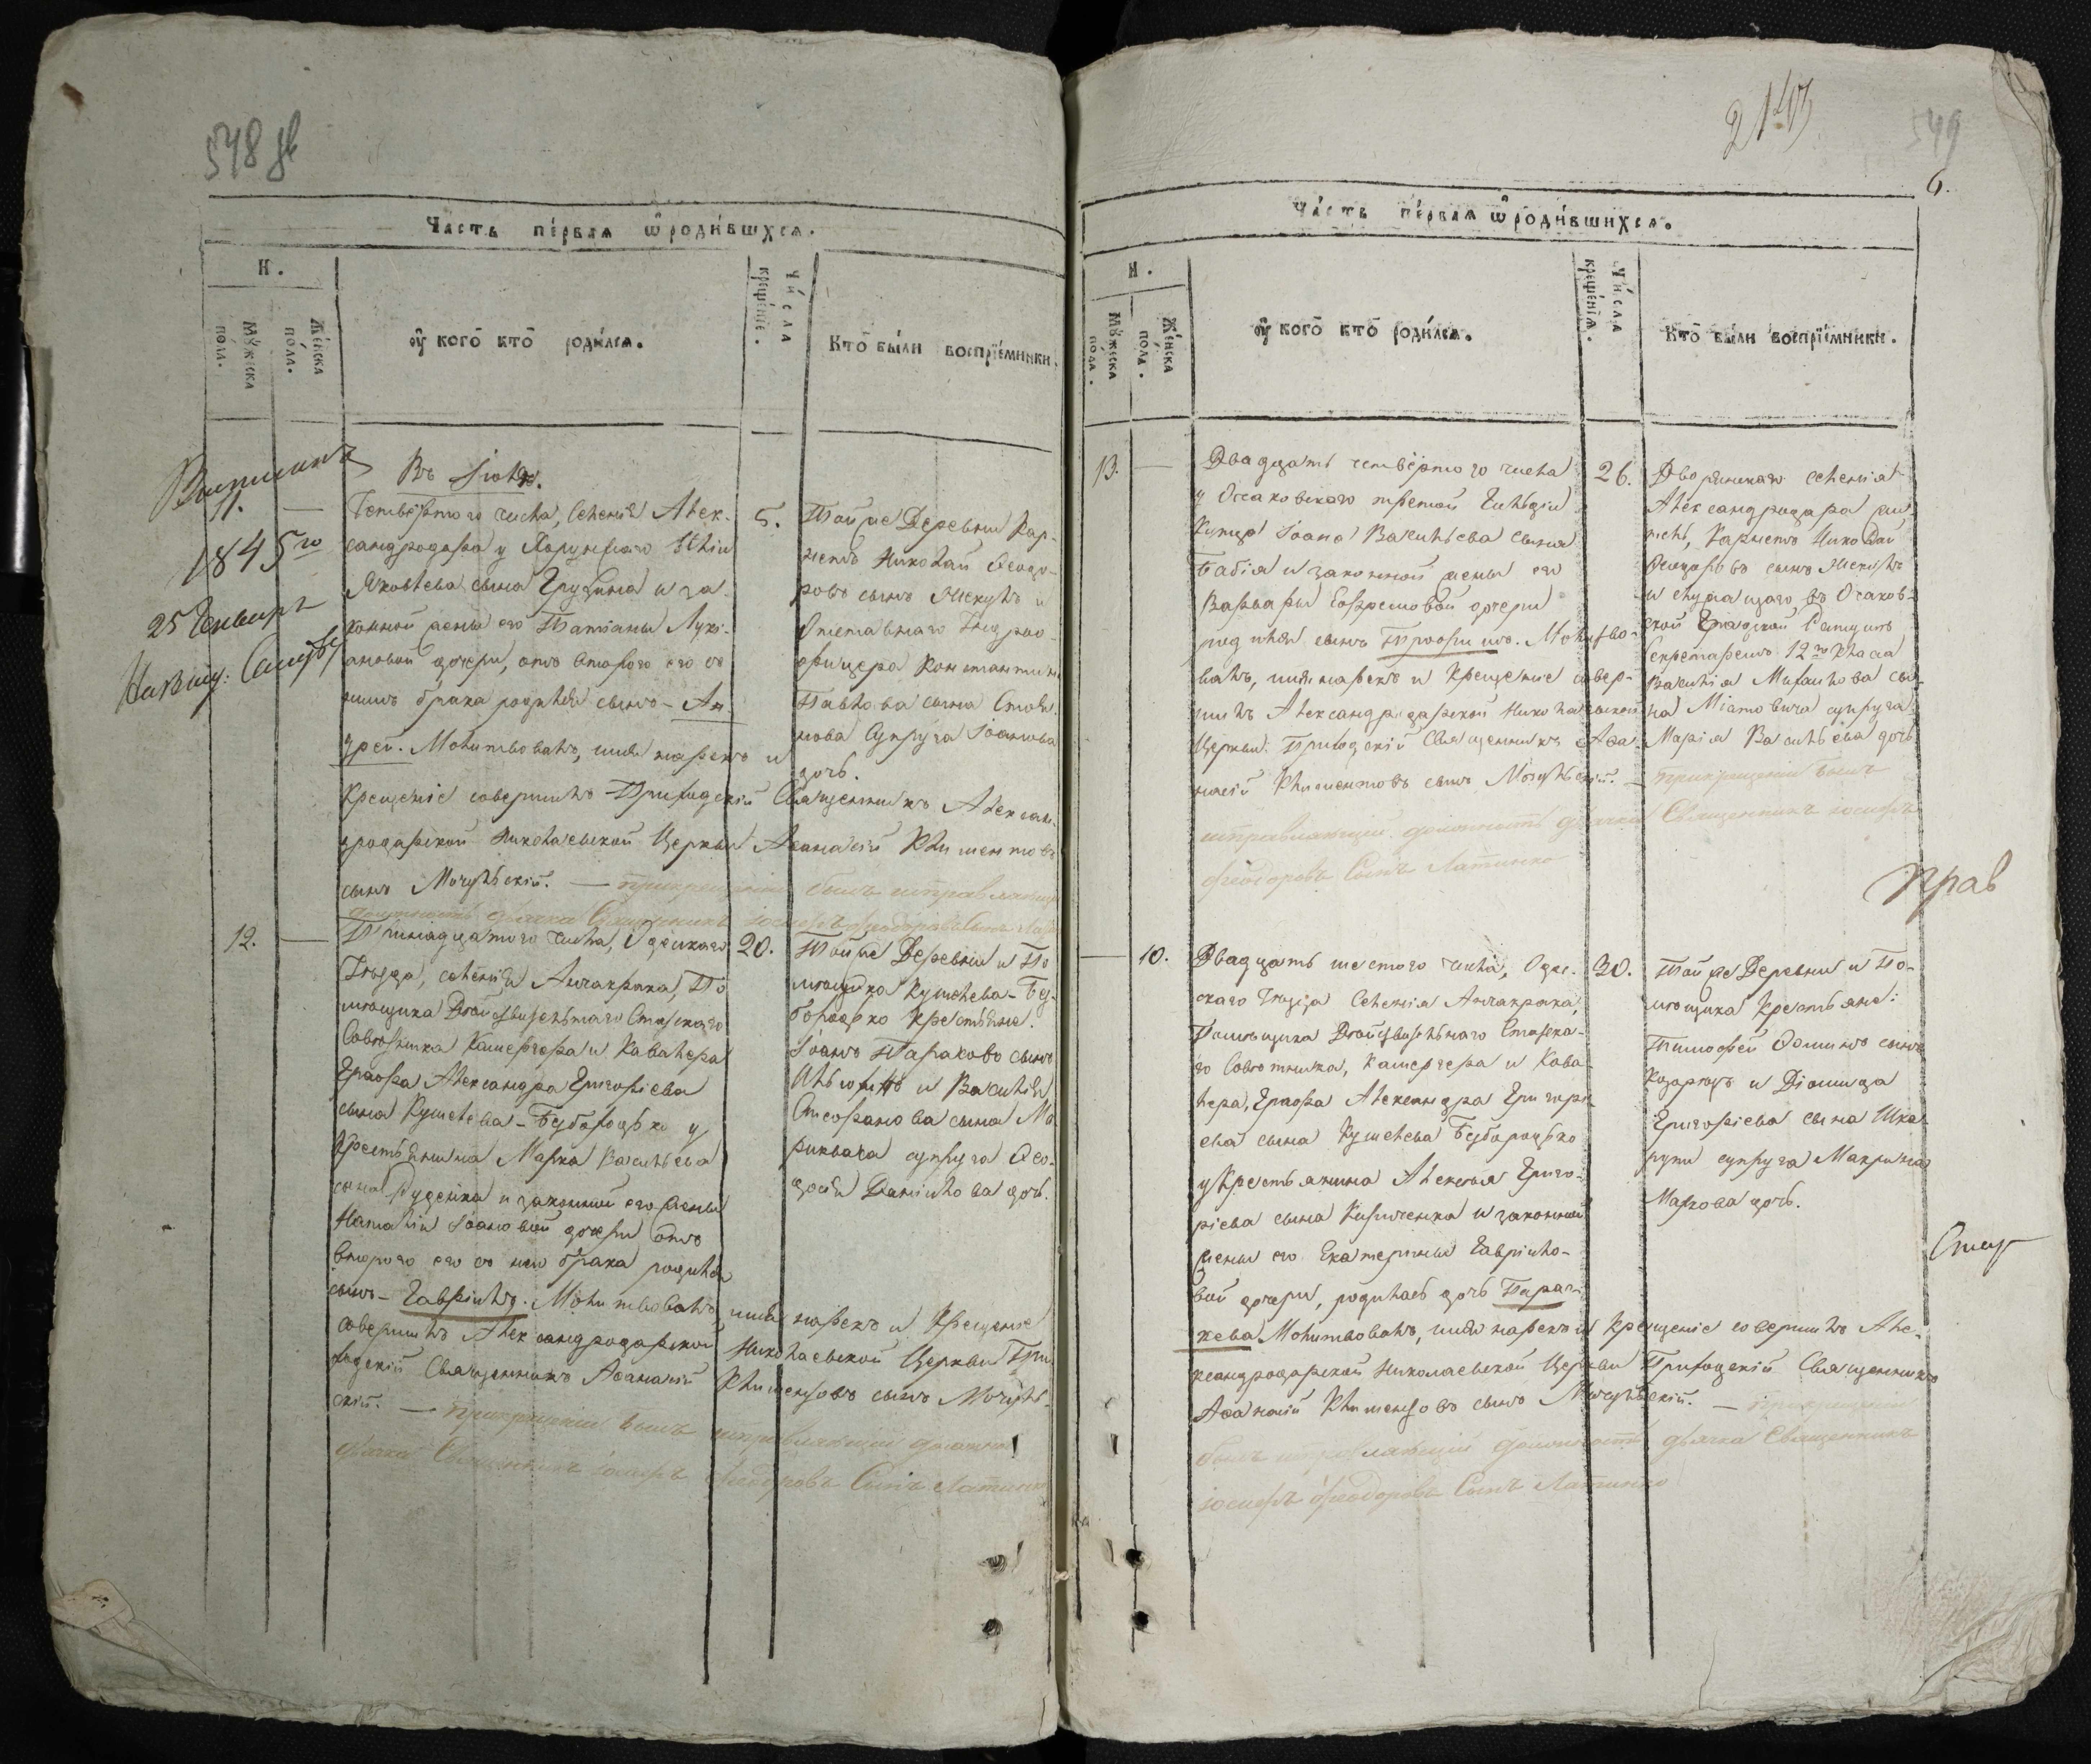 548 об
Часть пе́рвая ѿ роди́вшхся.
Н.
Му́жеска пола.
Же́нска пола.
ѹ кого̀ кто̀ роди́лся.
Чи́сла креще́нїе.
Кто̀ бы́ли воспрїе́мники.
Въ Іюлѣ.
11. —
1845го
25 Генваря
Четвертаго числа, Селенія Алек-
сандродара у Хорунжаго Иліи
Яковлева сына Грузина и за-
конной жены его Татіаны Лукі-
ановой дочери, отъ втораго его съ
нимъ брака родился сынъ - Ан-
дрей. Молитвовалъ, имя нарекъ и
Крещеніе совершилъ Приходскій Священникъ Алексан-
дродарской Николаевской Церкви Аѳанасій Климентовъ
сынъ Мочульскій. — прикрещеніи былъ исправляющій
должность дьячка Священникъ Іосифъ Феодоровъ Сынъ
5.
Той же Деревни Кор-
нетъ Николай Ѳеодо-
ровъ сынъ и
Отставнаго Ундеро-
фицера Константина
Павлова сына
нова Супруга Іоаннова
дочь.
12. —
Тринадцатаго числа, Одескаго
Уѣзда, селенія Анчакрака, По-
мѣщика Дѣйствительнаго Статскаго
Совѣтника Камергера и Кавалера
Графа Александра Григоріева
сына Кушелева-Безбородко у
Крестьянина Марка Васильева
сына Руденка и законной его жены
Наталіи Іоановой дочери отъ
втораго его съ нею брака родился
сынъ - Гавріилъ. Молитвовалъ, имя нарекъ и Крещеніе
совершилъ Александродарской Николаевской Церкви При-
ходскій Священникъ Аѳанасій Климентовъ сынъ Мочуль-
скій. — прикрещеніи былъ исправляющій должность
дьячка Священникъ Іосифъ Феодоровъ Сынъ Латинко
20.
Той же Деревни и По-
мѣщика Кушелева-Без-
бородко Крестьяне:
Іоанъ Тарасовъ сынъ
и Василія
Стефанова сына Ма-
супруга Ѳео-
досія Данилова дочь.
2143
549
6.
Часть пе́рвая ѿ роди́вшихся.
Н.
Му́жеска пола.
Же́нска пола.
ѹ кого̀ кто̀ роди́лся.
Чи́сла креще́нїя.
Кто̀ бы́ли воспрїе́мники.
13. —
Двадцать четвертаго числа
у Очаковскаго третей Гильдіи
Купца Іоана Васильева сына
Бабія и законной жены его
Варвары Ефремовой дочери
родился сынъ Трофимъ. Молитво-
валъ, имя нарекъ и Крещеніе совер-
шилъ Александродарской Николаевской
Церкви Приходскій Священникъ Аѳа-
насій Климентовъ сынъ Мочульскій. — прикрещеніи былъ
исправляющій должность дьячка Священникъ Іосифъ
Феодоровъ Сынъ Латинко
26.
Дворянскаго селенія
Александродара жи-
тель, Карнетъ Николай
Ѳеодоровъ сынъ
и служащаго въ Очаков-
ской Градской Ратушѣ
Секретаремъ 12го Класа
Василія Михайлова сы-
на супруга
Марія Васильева дочь
— 10.
Двадцать шестаго числа, Одес-
скаго Уѣзда Селенія Анчакрака,
Помѣщика Дѣйствительнаго Статска-
го Совѣтника, Камергера и Кава-
лера, Графа Александра Григорі-
ева сына Кушелева Безбородко
у Крестьянина Алексѣя Григо-
ріева сына Кириченка и законной
жены его Екатерины Гавріило-
вой дочери, родилась дочь Парас-
кева. Молитвовалъ, имя нарекъ и Крещеніе совершилъ Але-
ксандродарской Николаевской Церкви Приходскій Священникъ
Аѳанасій Климентовъ сынъ Мочульскій. — прикрещеніи
былъ исправляющій должность дьячка Священникъ
Іосифъ Феодоровъ Сынъ Латинко
30.
Той же Деревни и По-
мѣщика Крестьяне:
Тимофей Ѳоминъ сынъ
и Діомида
Григоріева сына
супруга Макрина
Маркова дочь.